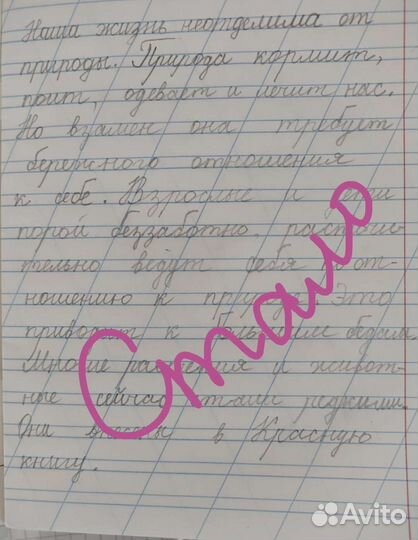 Наша жизнь неотделима от
природы. Природа кормит,
поит, одевает и лечит нас.
Но взамен она требует
бережного отношения
к себе. Взрослые и дети
порой беззаботно, расточи-
тельно ведут себя по от-
ношению к природе. Это
приводит к большим бедам.
Многие растения и живот-
ные сейчас стали редкими.
Они внесены в Красную
книгу.
Стало
Avito